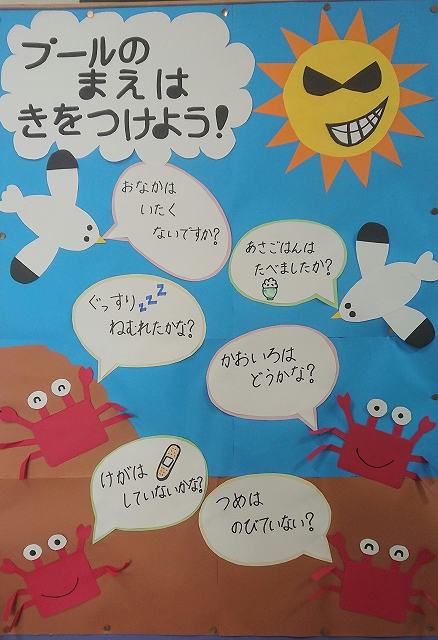 プールの
まえは
きをつけよう!
おなかは
いたく
ないですか?
あさごはんは
たべましたか?
ぐっすりzzz
ねむれたかな?
かおいろは
どうかな?
けがは
していないかな?
つめは
のびていない?